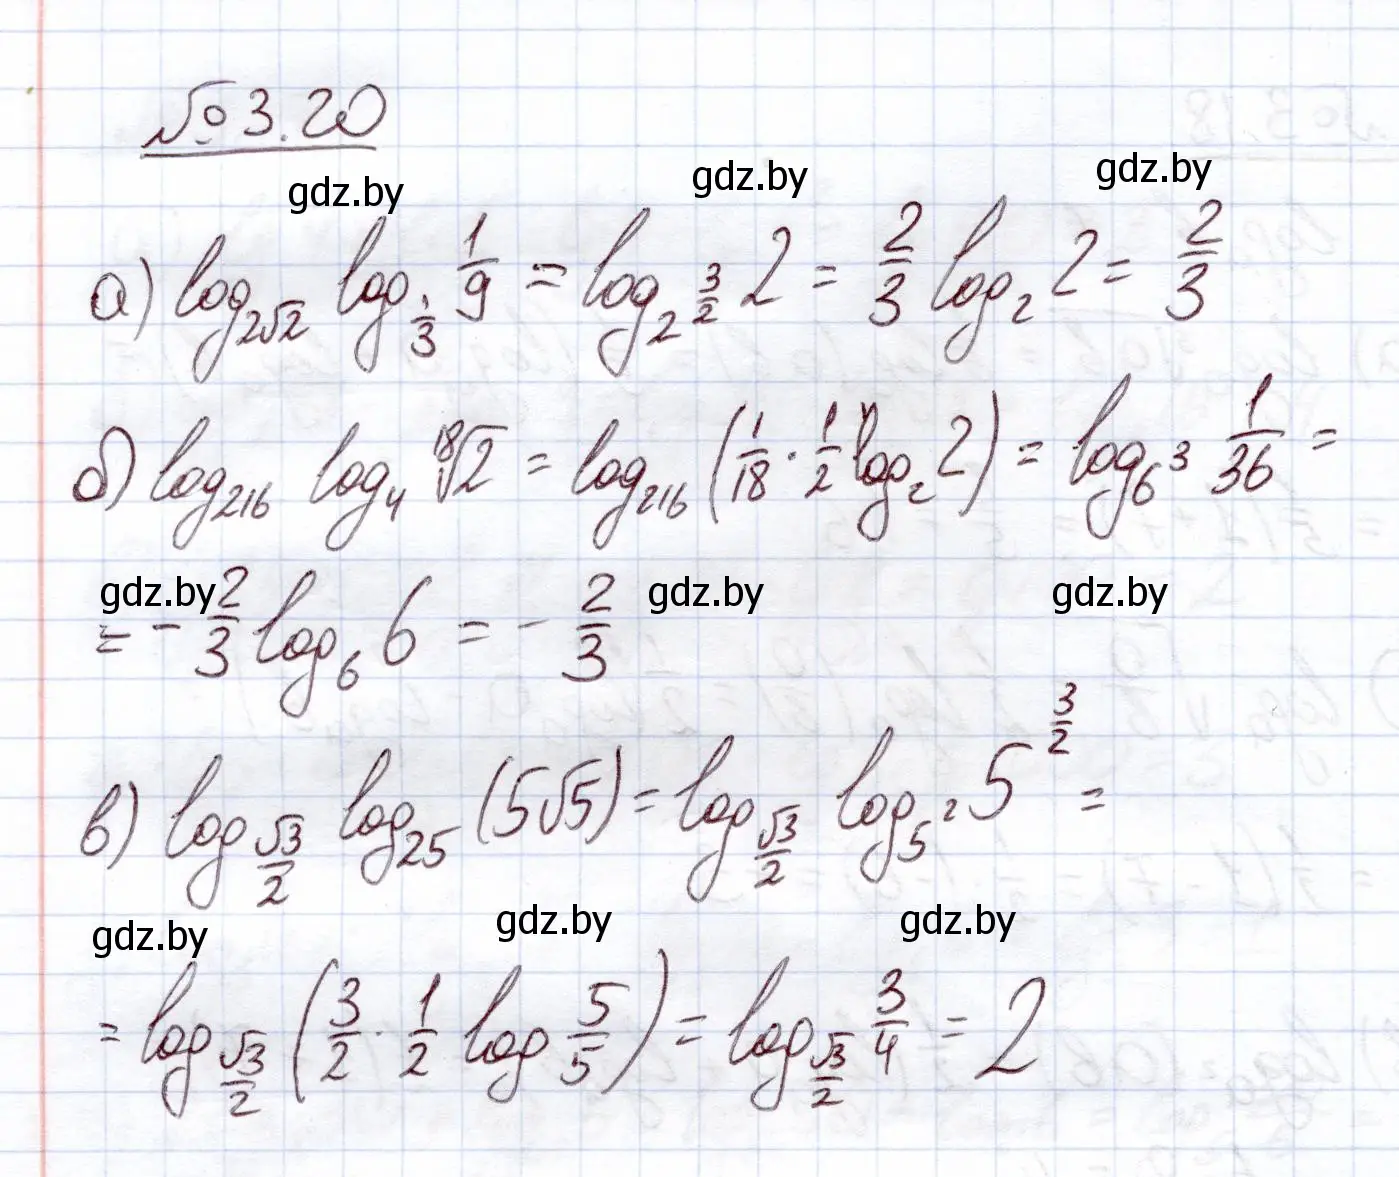 № 3.20
gdz.by gdz.by gdz.by
а) log_{2√2} log_{1/3} 1/9 = log_{2^{3/2}} 2 = 2/3 log_2 2 = 2/3
б) log_{216} log_4 ¹⁸√2 = log_{216} (1/18 · 1/2 log_2 2) = log_{6^3} 1/36 =
gdz.by gdz.by gdz.by
= - 2/3 log_6 6 = - 2/3
в) log_{√3/2} log_{25} (5√5) = log_{√3/2} log_{5^2} 5^{3/2} =
gdz.by gdz.by gdz.by
= log_{√3/2} (3/2 · 1/2 log 5/5) = log_{√3/2} 3/4 = 2